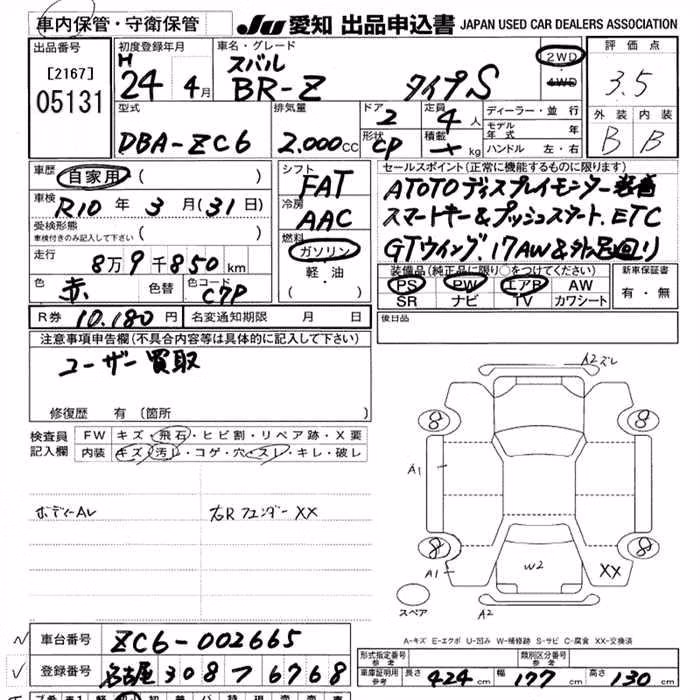 車内保管・守衛保管 JU 愛知 出品申込書 JAPAN USED CAR DEALERS ASSOCIATION
出品番号
[2167]
05131
初度登録年月
H
24 年 4 月
車名・グレード
スバル
BR-Z タイプS
2WD
4WD
評価点
3.5
外装 内装
B B
型式
DBA-ZC6
排気量
2.000 CC
ドア
2
形状
CP
定員
4 人
積載
kg
ディーラー・並行
モデル年式 年
ハンドル 左・右
車歴 自家用 ( )
車検 R10 年 3 月(31日)
受検形態
車検付きのみ記入して下さい ( )
走行
8万9千850km
色 赤 色替 色コード C7P
シフト
FAT
冷房
AAC
燃料
ガソリン
軽・油
( )
セールスポイント(正常に機能するものに限ります)
ATOTOディスプレイモニター装着
スマートキー&プッシュスタート、ETC
GTウイング、17AW&外足回り
装備品(純正品に限り○をつけてください)
PS PW エアB AW
SR ナビ TV カワシート
新車保証書
有・無
R券 10.180 円 名変通知期限 月 日
後日品
注意事項申告欄(不具合内容等は具体的に記入して下さい)
ユーザー買取
修復歴 有 (箇所 )
検査員記入欄
FW キズ・飛石・ヒビ割・リペア跡・X要
内装 キズ・汚レ・コゲ・穴・スレ・キレ・破レ
ボディーAu
右Rフェンダー XX
A2ズレ
8 8
A1
8 8
A1 W2 XX
スペア
A2
A-キズ E-エクボ U-凹み W-補修跡 S-サビ C-腐食 XX-交換済
車台番号 ZC6-002665
登録番号 名古屋 308 フ 6768
形式指定番号 参考
類別区分番号 参考
車庫証明用 参考 長さ 424 cm 幅 177 cm 高さ 130 cm